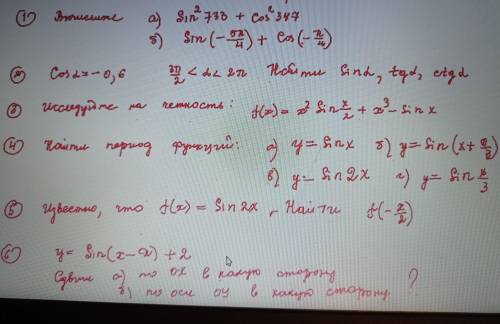 ① Вычислите а) Sin² 733 + Cos² 347
б) Sin(-5π/4) + Cos(-π/4)
② Cos α = -0,6 3π/2 < α < 2π Найти Sin α, tg α, ctg α
③ Исследуйте на четность: f(x) = x² Sin x/2 + x³ - Sin x
④ Найти период функций: а) y = Sin x б) y = Sin(x + π/2)
в) y = Sin 2x г) y = Sin x/3
⑤ Известно, что f(x) = Sin 2x, Найти f(-π/2)
⑥ y = Sin(x - π) + 2
Сдвиг а) по OX в какую сторону
б) по оси OY в какую сторону ?